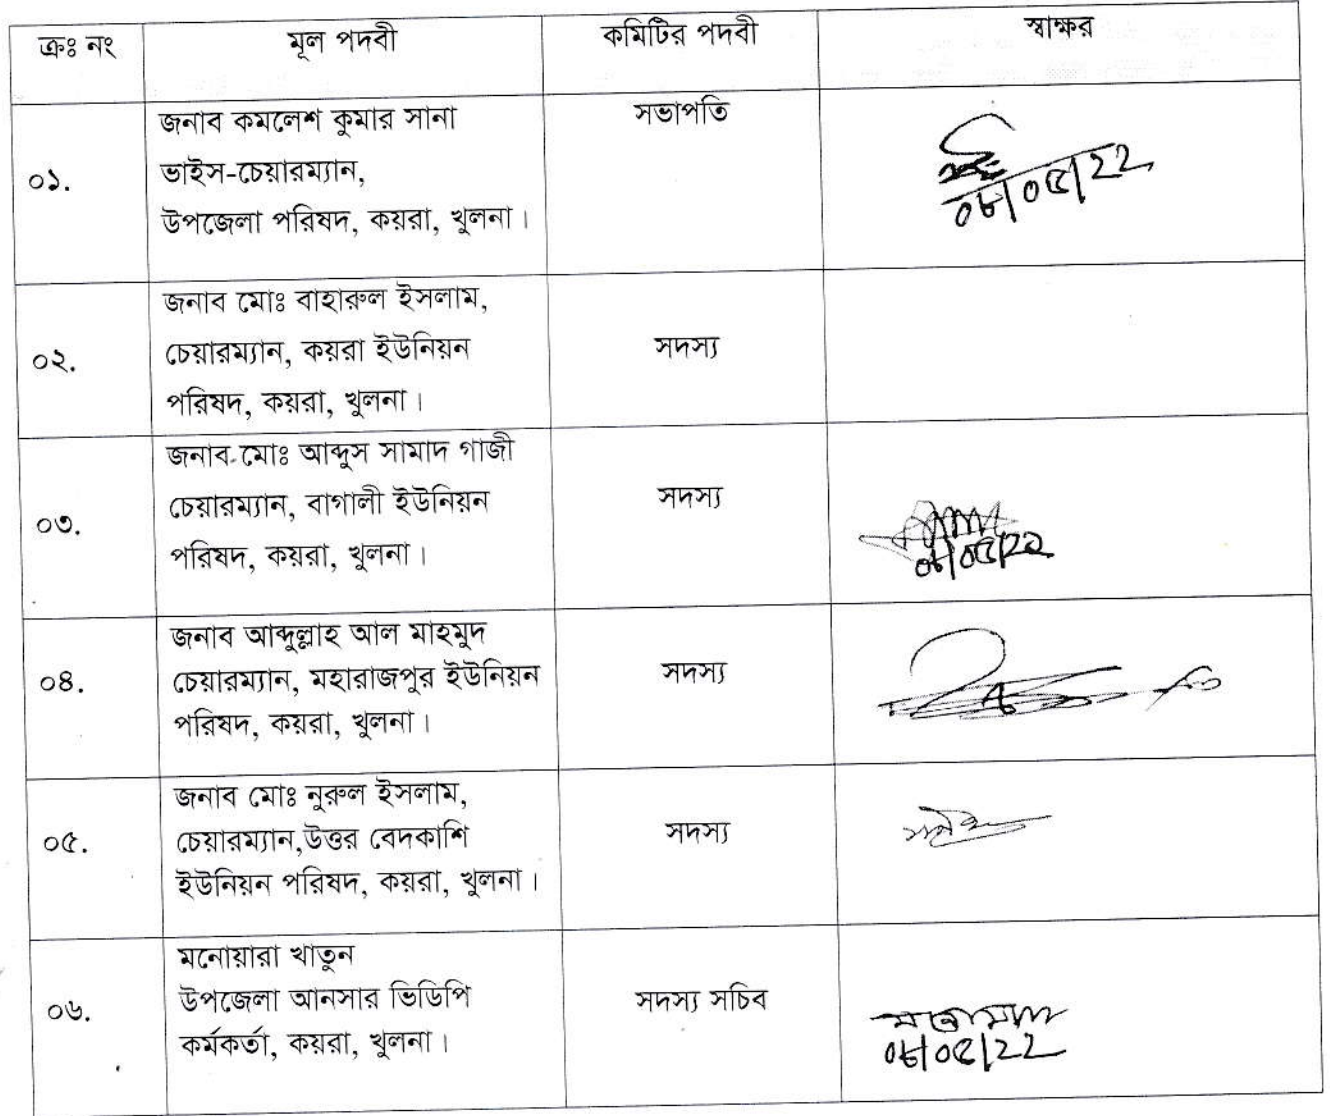 ক্রঃ নং মূল পদবী কমিটির পদবী স্বাক্ষর
জনাব কমলেশ কুমার সানা
ভাইস-চেয়ারম্যান,
উপজেলা পরিষদ, কয়রা, খুলনা।
০১.
সভাপতি
০৮/০৫/২২
জনাব মোঃ বাহারুল ইসলাম,
চেয়ারম্যান, কয়রা ইউনিয়ন
পরিষদ, কয়রা, খুলনা।
০২.
সদস্য
জনাব মোঃ আব্দুস সামাদ গাজী
চেয়ারম্যান, বাগালী ইউনিয়ন
পরিষদ, কয়রা, খুলনা।
০৩.
সদস্য
০৮/০৫/২২
জনাব আব্দুল্লাহ আল মাহমুদ
চেয়ারম্যান, মহারাজপুর ইউনিয়ন
পরিষদ, কয়রা, খুলনা।
০৪.
সদস্য
জনাব মোঃ নুরুল ইসলাম,
চেয়ারম্যান,উত্তর বেদকাশি
ইউনিয়ন পরিষদ, কয়রা, খুলনা।
০৫.
সদস্য
মনোয়ারা খাতুন
উপজেলা আনসার ভিডিপি
কর্মকর্তা, কয়রা, খুলনা।
০৬.
সদস্য সচিব
০৮/০৫/২২